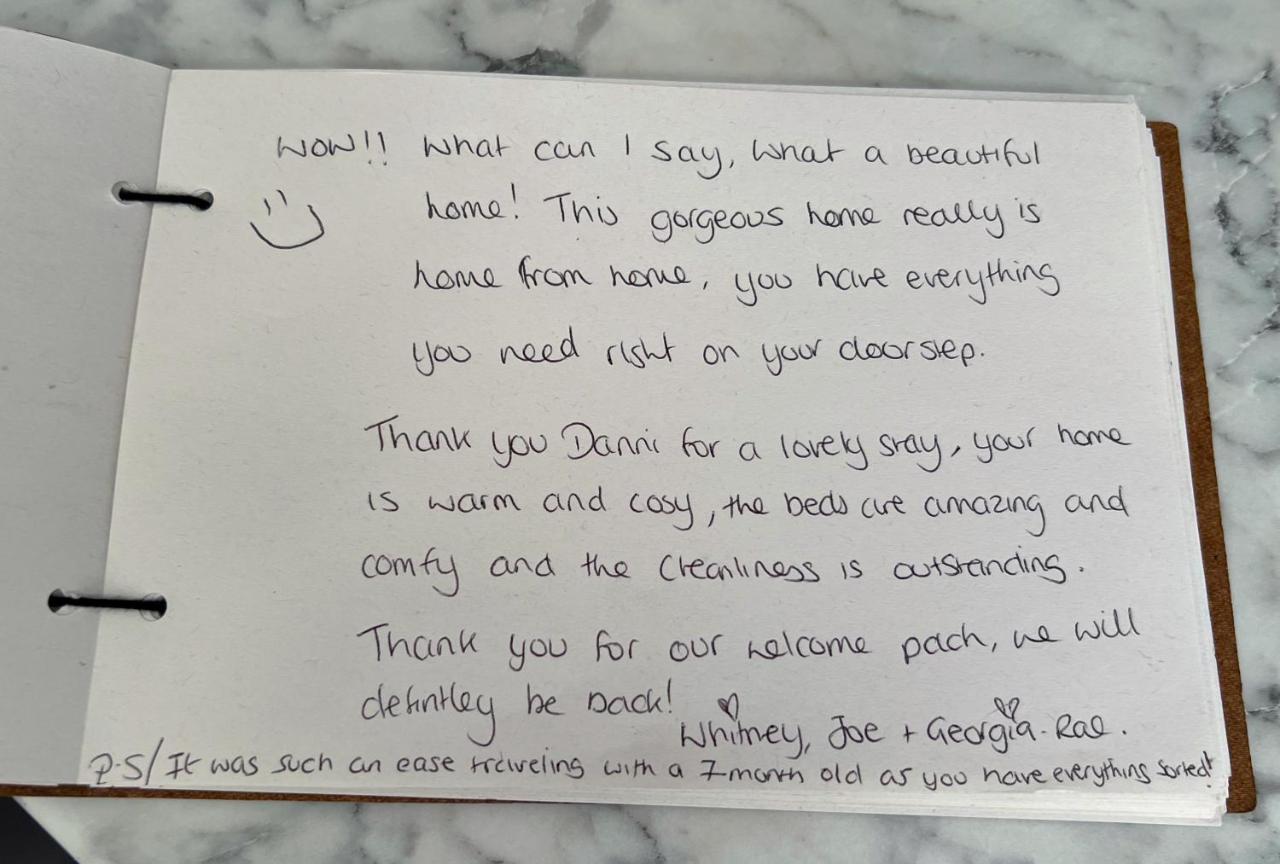 WOW!! What can I say, what a beautiful
home! This gorgeous home really is
home from home, you have everything
you need right on your doorstep.
Thank you Danni for a lovely stay, your home
is warm and cosy, the beds are amazing and
comfy and the cleanliness is outstanding.
Thank you for our welcome pack, we will
definitley be back!
Whitney, Joe + Georgia-Rae.
P.S/ It was such an ease traveling with a 7 month old as you have everything sorted!